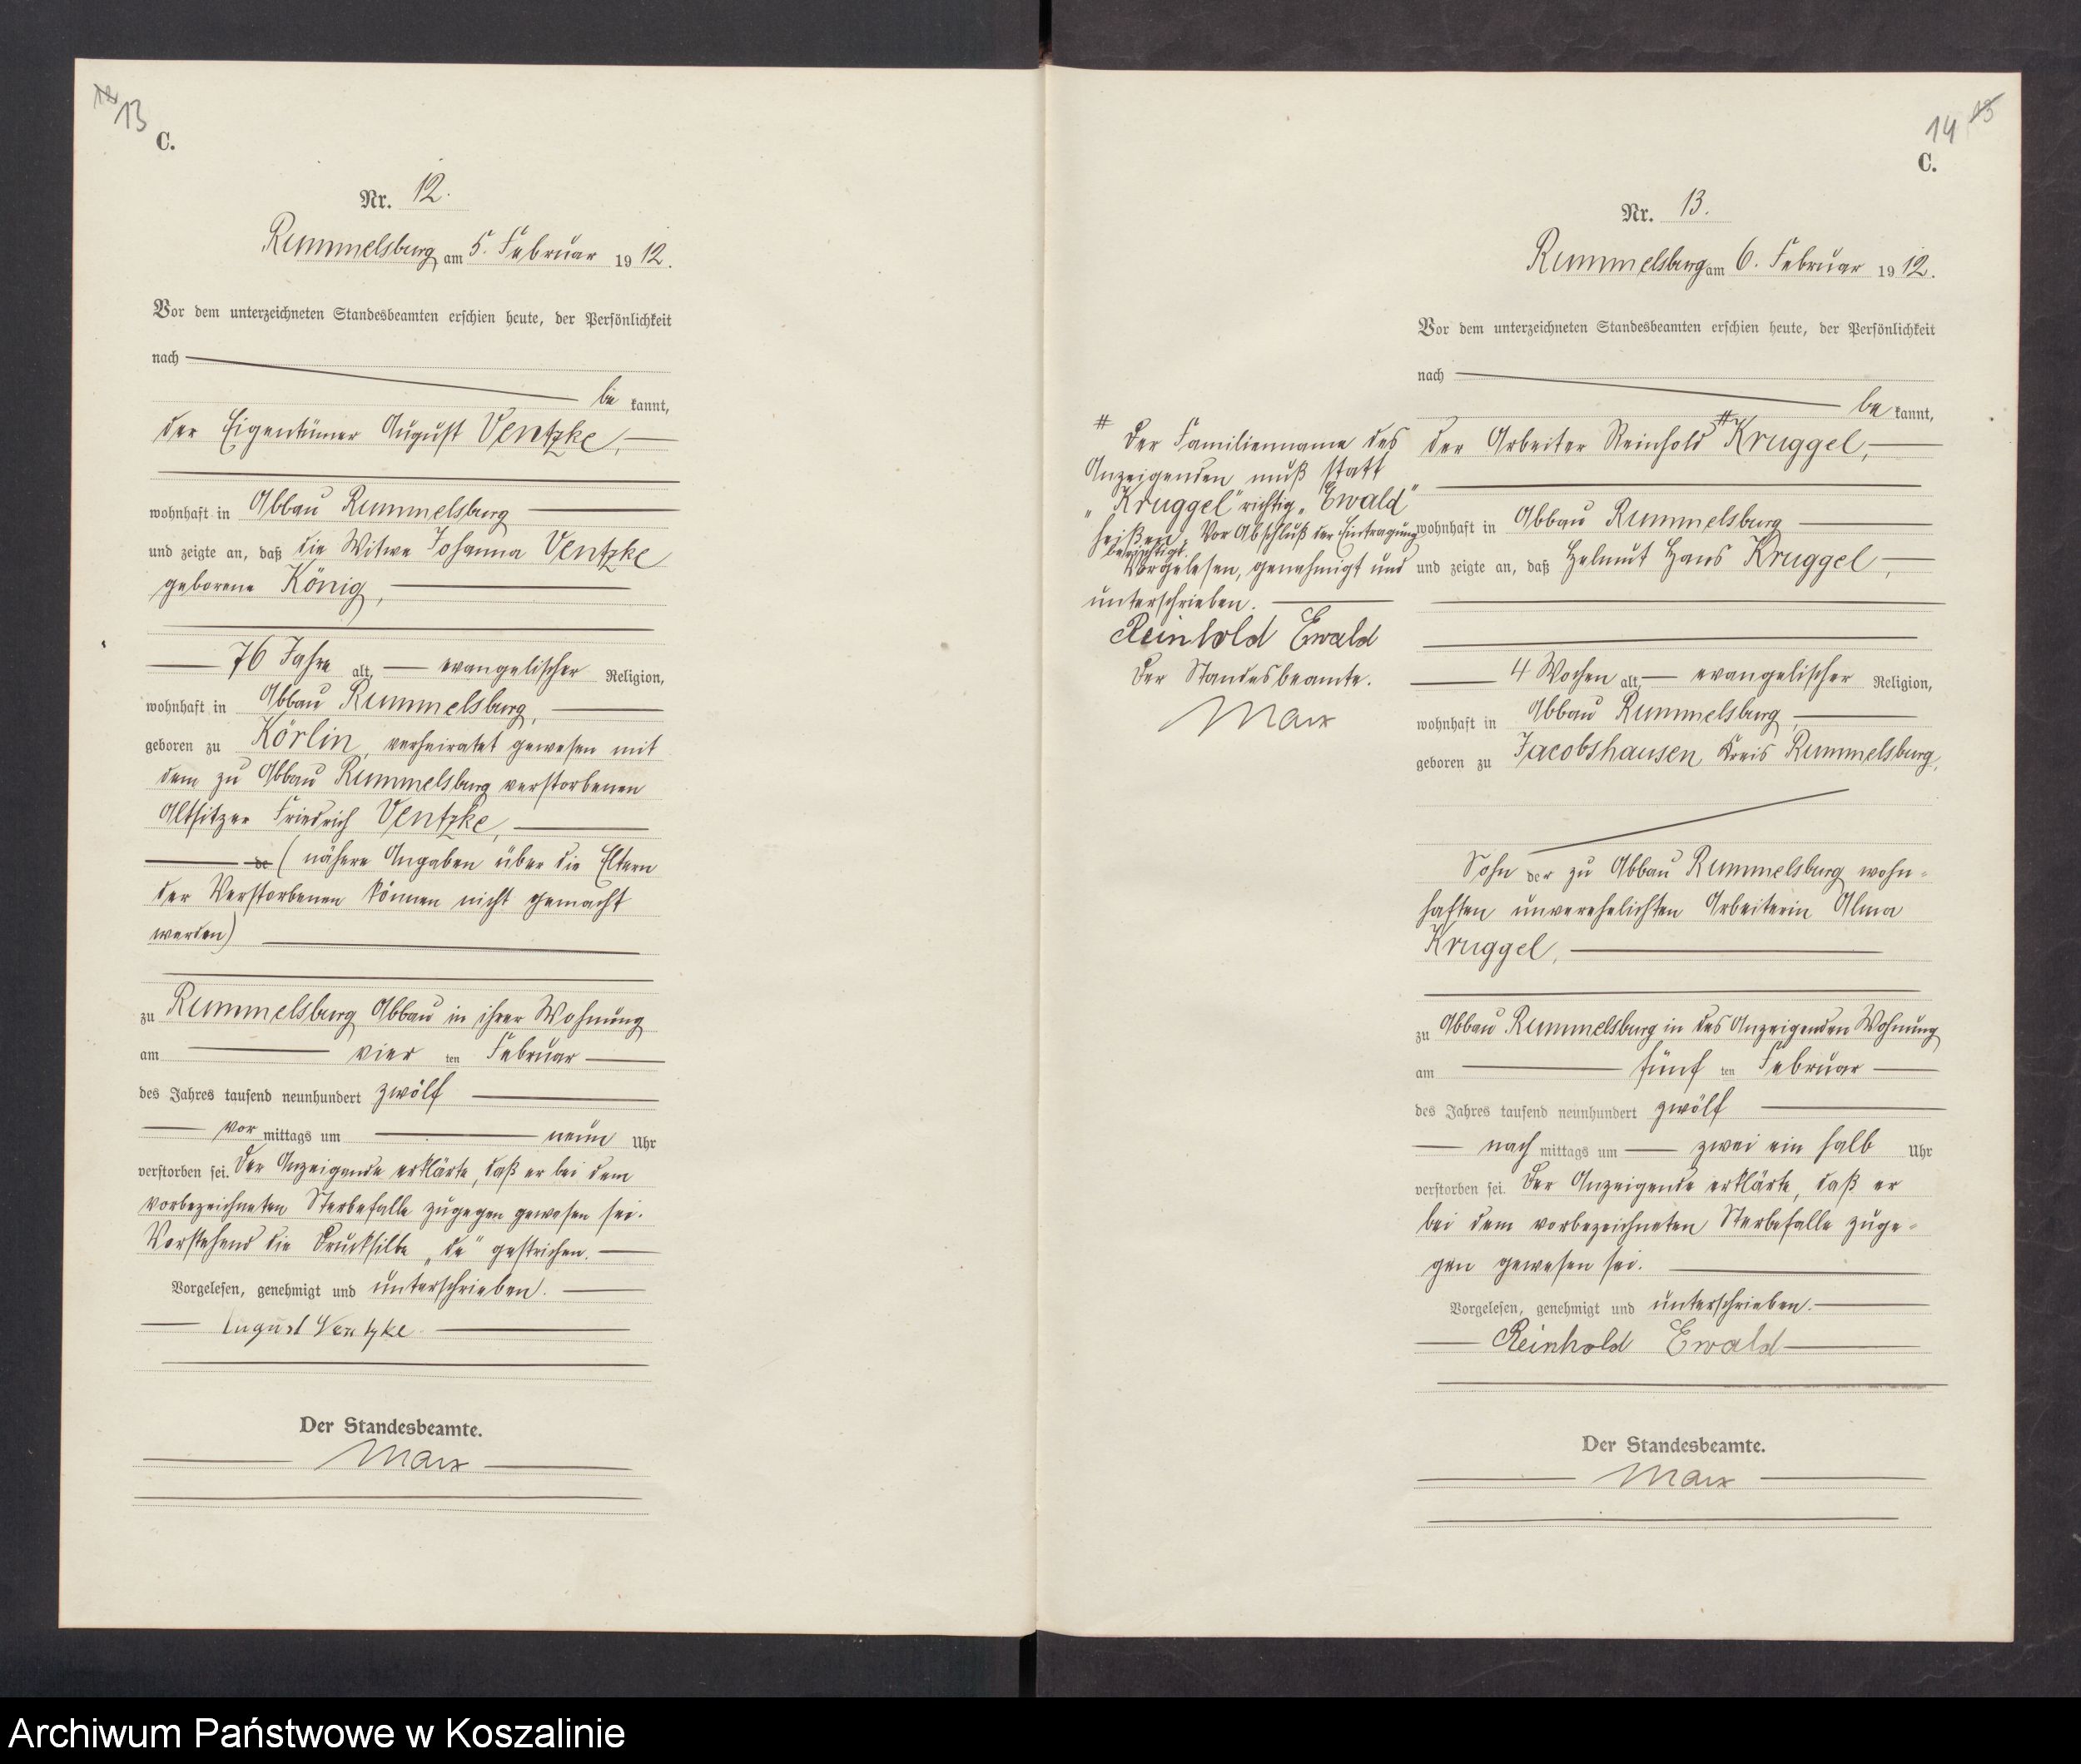 12 13
C.
Nr. 12.
Rummelsburg am 5. Februar 1912.
Vor dem unterzeichneten Standesbeamten erschien heute, der Persönlichkeit
nach
be kannt,
der Eigentümer August Ventzke,
wohnhaft in Abbau Rummelsburg
und zeigte an, daß die Witwe Johanna Ventzke
geborene König,
76 Jahre alt, evangelischer Religion,
wohnhaft in Abbau Rummelsburg,
geboren zu Körlin, verheiratet gewesen mit
dem zu Abbau Rummelsburg verstorbenen
Altsitzer Friedrich Ventzke,
de (nähere Angaben über die Eltern
der Verstorbenen können nicht gemacht
werden)
zu Rummelsburg Abbau in ihrer Wohnung
am vier ten Februar
des Jahres tausend neunhundert zwölf
vor mittags um neun Uhr
verstorben sei. Der Anzeigende erklärte, daß er bei dem
vorbezeichneten Sterbefalle zugegen gewesen sei.
Vorstehend die Drucksilbe „de" gestrichen.
Vorgelesen, genehmigt und unterschrieben.
August Ventzke
Der Standesbeamte.
Marx
14 13
C.
Nr. 13.
Rummelsburg am 6. Februar 1912.
Vor dem unterzeichneten Standesbeamten erschien heute, der Persönlichkeit
nach
be kannt,
der Arbeiter Reinhold # Kruggel,
wohnhaft in Abbau Rummelsburg
und zeigte an, daß Helmut Hans Kruggel,
4 Wochen alt, evangelischer Religion,
wohnhaft in Abbau Rummelsburg,
geboren zu Jacobshausen, Kreis Rummelsburg,
Sohn der zu Abbau Rummelsburg wohn-
haften unverehelichten Arbeiterin Alma
Kruggel,
zu Abbau Rummelsburg in des Anzeigenden Wohnung
am fünf ten Februar
des Jahres tausend neunhundert zwölf
nach mittags um zwei ein halb Uhr
verstorben sei. Der Anzeigende erklärte, daß er
bei dem vorbezeichneten Sterbefalle zuge-
gen gewesen sei.
Vorgelesen, genehmigt und unterschrieben.
Reinhold Ewald
Der Standesbeamte.
Marx
# Der Familienname des
Anzeigenden muß statt
„Kruggel" richtig „Ewald"
heißen. Vor Abschluß der Eintragung
berichtigt.
Vorgelesen, genehmigt und
unterschrieben.
Reinhold Ewald
Der Standesbeamte.
Marx
Archiwum Państwowe w Koszalinie